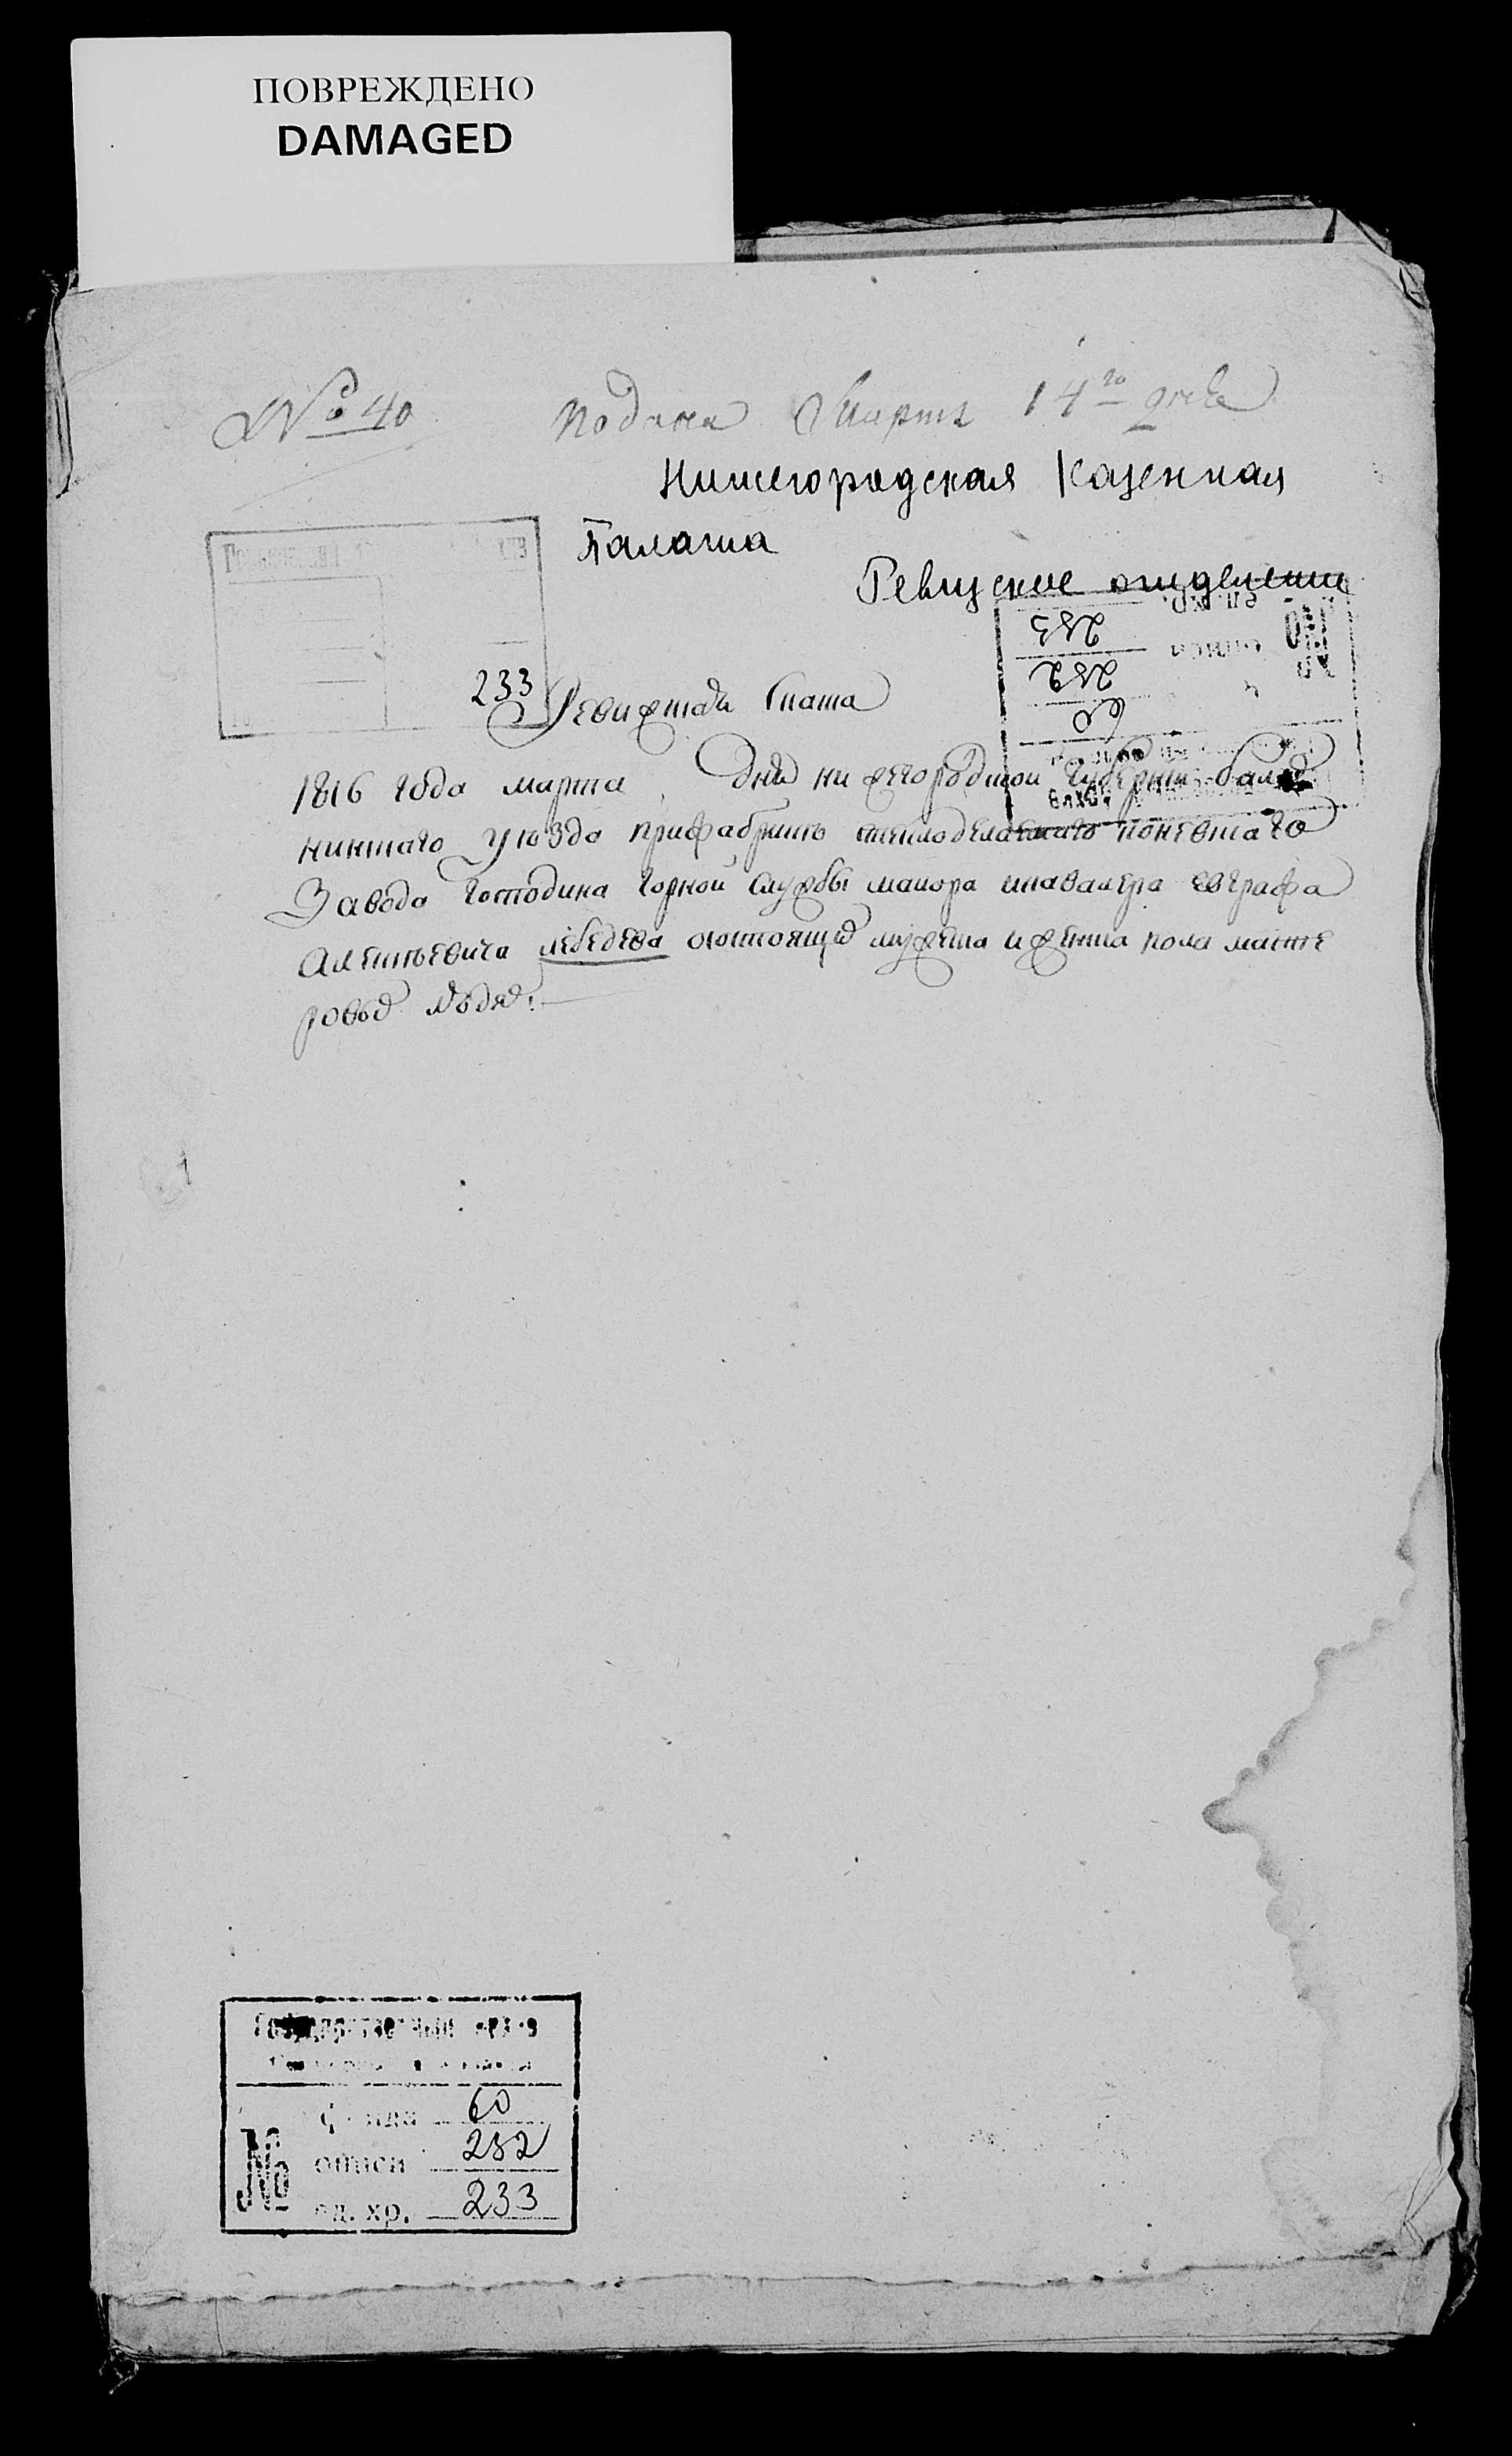 ПОВРЕЖДЕНО
DAMAGED
№ 40 Подана Марта 14го дня
Нижегородская Казенная
Палата
Ревизское отделение
233
Ревижская Скаска
1816 года марта дня нижегородской губернии балах
нинскаго уюзда прифабрике стеклоделаемаго
Завода Господина горной службы маиора икавалера евграфа
Алексеевича лебедева осостоящих мужеска иженска пола мастте
ровых людях.
60
282
233
Государственный архив
фонда 60
№ описи 282
ед. хр. 233